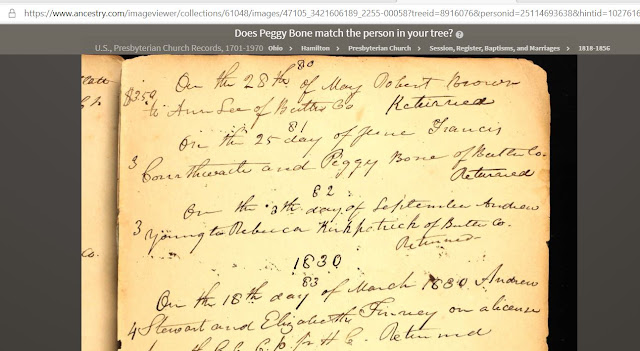 https://www.ancestry.com/imageviewer/collections/61048/images/47105_3421606189_2255-00058?treeid=8916076&personid=25114693638&hintid=1027616
Does Peggy Bone match the person in your tree?
U.S., Presbyterian Church Records, 1701-1970 Ohio > Hamilton > Presbyterian Church > Session, Register, Baptisms, and Marriages > 1818-1856
80
On the 28th of May Robert Brown
to Ann Lee of Butler Co Returned
81
On the 25 day of June Francis
3 and Peggy Bone of Butler Co.
Returned
82
On the day of September Andrew
3 Young to Rebecca Kirkpatrick of Butler Co.
Returned
1830
83
On the 18th day of March 1830 Andrew
4 Stewart and Elizabeth Finney on a license
Returned
Co.